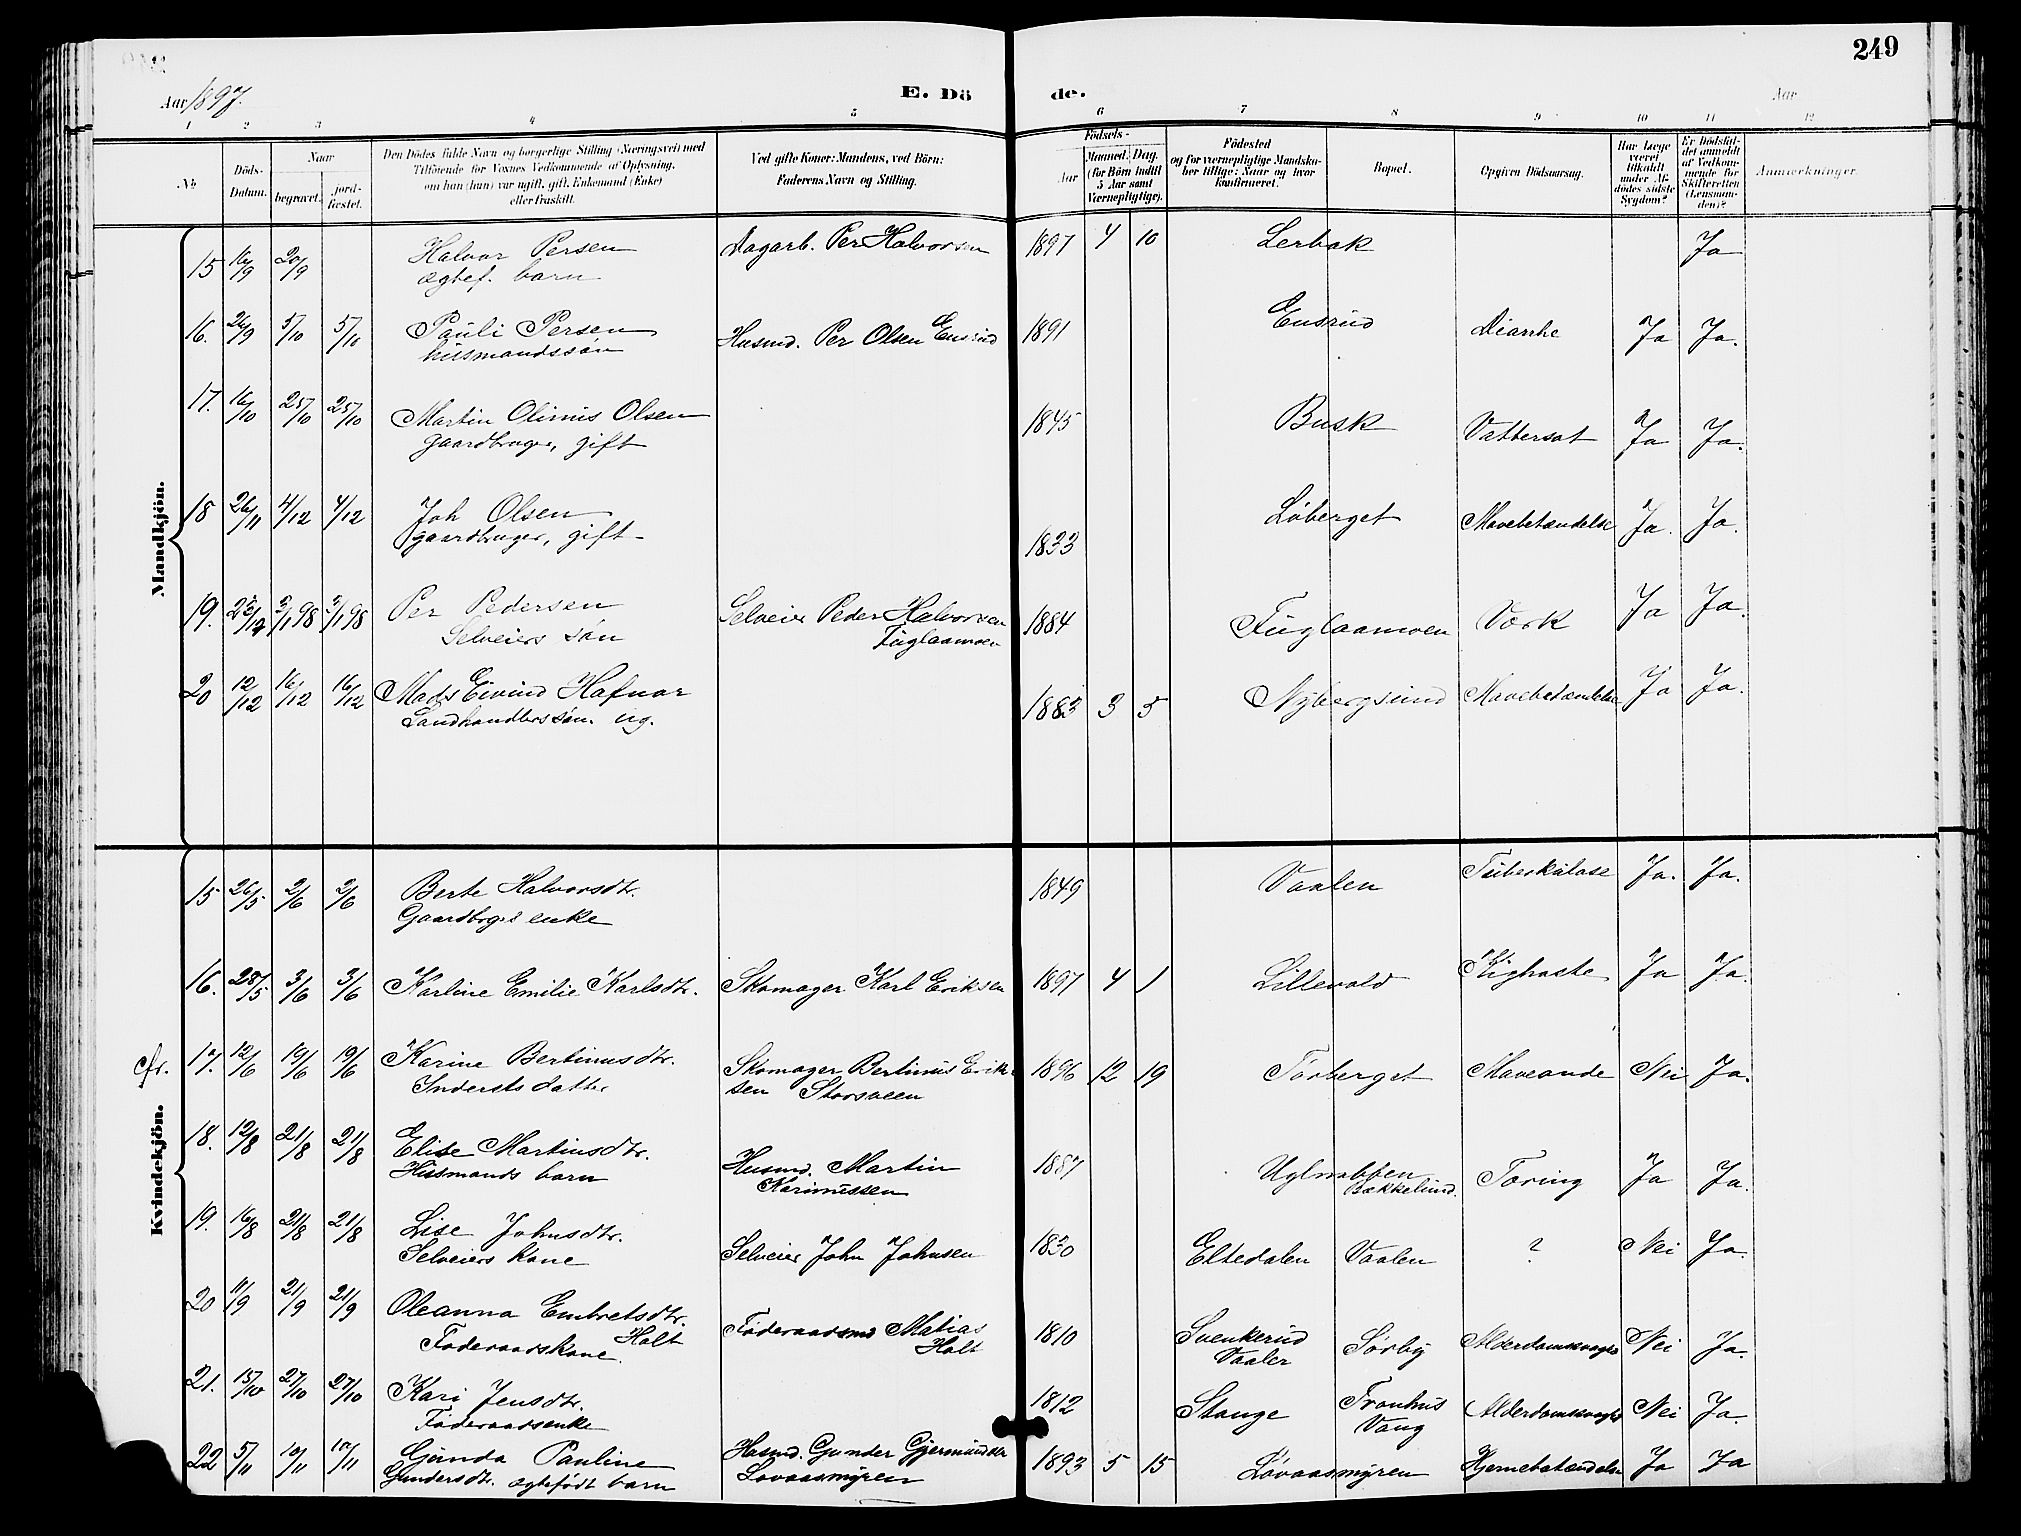 249
Aar 1897.
E. Dö de.
Aar
1 2 3 4 5 6 7 8 9 10 11 12
No
Döds-Datum.
Naar
begravet.
jord-fæstet.
Den Dödes fulde Navn og borgerlige Stilling (Næringsvei) med
Tilföiende for Voxnes Vedkommende af Oplysning,
om han (hun) var ugift, gift, Enkemand (Enke)
eller fraskilt.
Ved gifte Koner: Mandens, ved Börn:
Faderens Navn og Stilling.
Födsels-
Aar
Maaned. Dag.
(for Börn indtil
5 Aar samt
Værnepligtige).
Födested
og for værnepligtige Mandska-
ber tillige: Naar og hvor
konfirmeret.
Bopæl.
Opgiven Dödsaarsag.
Har Læge
været
tilkaldt
under Af-
dödes sidste
Sygdom?
Er Dödsfal-
det anmeldt
af Vedkom-
mende for
Skifteretten
(Lensman-
den)?
Anmærkninger.
Mandkjön.
15 16/9 20/9 Halvor Persen Dagarb. Per Halvorsen 1897 4 10 Lerbak Ja
ægtef. barn
16. 26/9 5/10 5/10 Pauli Persen Husmd. Per Olsen Ensrud 1891 Ensrud Diarrhe Ja Ja.
husmandssøn
17. 16/10 25/10 25/10 Martin Olinius Olsen 1845 Busk Vattersot Ja Ja.
gaardbruger, gift
18 26/11 4/12 4/12 Joh Olsen 1833 Løberget Mavebetændelse Ja. Ja.
gaardbruger, gift
19. 3/1 98 3/1 98 Per Pedersen Selveier Peder Halvorsen 1884 Fuglaamoen Værk Ja Ja.
Selveiers søn Fuglaamoen
20 12/12 16/12 16/12 Mads Eivind Hafnor 1883 3 5 Nybergsund Mavebetændelse Ja Ja.
Landhandlerssøn. ug.
Kvindekjön.
15 26/5 2/6 2/6 Berte Halvorsdtr. 1849 Vaalen Tuberkulose Ja. Ja.
Gaardbrgs enke
16. 28/5 3/6 3/6 Karline Emilie Karlsdtr. Skomager Karl Eriksen 1897 4 1 Lillevold Kighoste Ja Ja.
fr. 17. 12/6 19/6 19/6 Karine Bertinusdtr. Skomager Bertinus Erik- 1896 12 19 Tørberget Maveonde Nei Ja.
Inderstsdatter sen Storsveen
18. 12/8 21/8 21/8 Elise Martinsdtr. Husmd. Martin 1887 Uglnabben Tæring Ja Ja.
Husmands barn Karinussen Bækkelund.
19. 16/8 21/8 21/8 Lise Johnsdtr. 1830 Eltedalen Vaalen ? Nei Ja.
Selveiers kone Selveier John Johnsen
20 11/9 21/9 21/9 Oleanna Embretsdtr. Føderaadsmd Matias 1810 Svenkerud Sørby Alderdomssvaghed Nei Ja.
Føderaadskone. Holt Holt Vaaler
21. 15/10 27/10 27/10 Kari Jensdtr. 1812 Stange Tronhus Alderdomssvaghed Nei Ja.
Føderaadsenke Vang
22 5/11 10/11 10/11 Gunda Pauline Husmd. Gunder 1893 5 15 Løvaasmyren Hjernebetændelse Ja Ja
Gundersdtr. ægtefødt barn Løvaasmyren